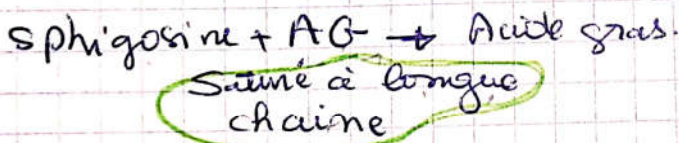 sphigosine + AG → Acide gras.
Saturé à longue
chaine